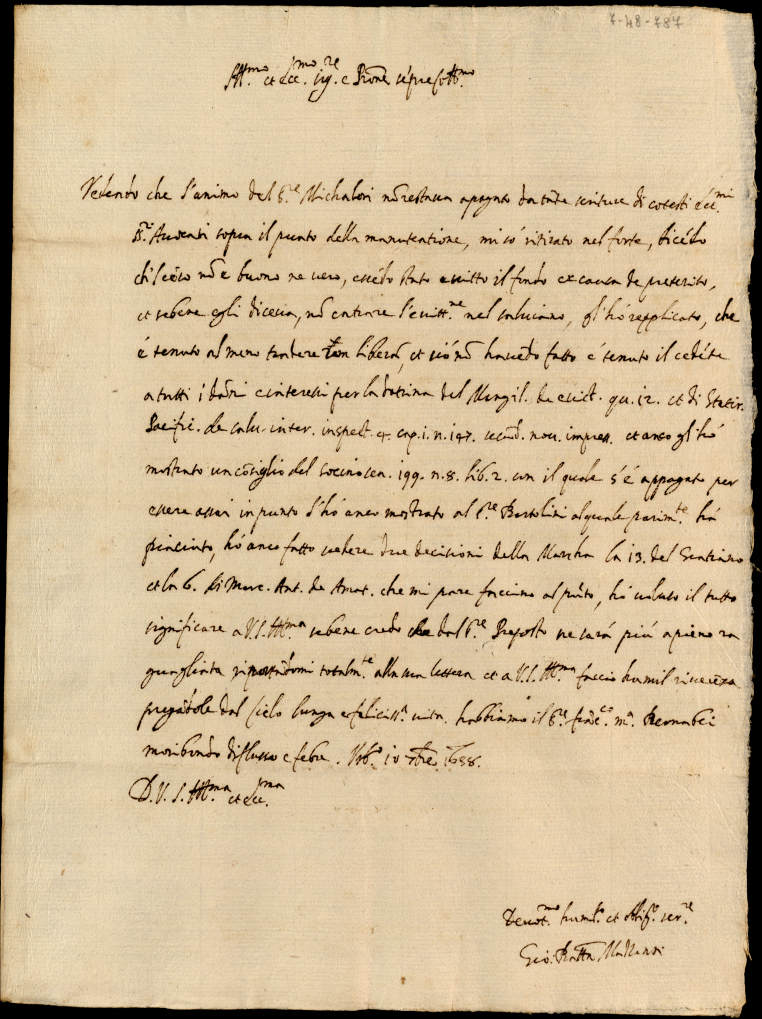 7-48-787
Ill.mo et Ecc.mo Sig.re e Pròne sèpre Coll.mo
Vedendo che l'animo del S.re Michalori nò restava apagato da tàte scritture di cotesti Ecc.mi
SS.ri Avocati sopra il punto della manutentione, mi só ritirato nel forte, dicèdo
ch'il ceso nò è buono ne vero, essèdo stato evitto il fondo ex causa de preterito,
et sebene egli diceva, nò entrare l'evitt.ne nel salviano, gl'hò repplicato, che
è tenuto al meno tradere rem liberà, et ciò nò havèdo fatto è tenuto il cedète
a tutti i dàni e interessi per la dotrina del Mangil. de evict. qu. 12. et di Stair.
Pacific. de salv. inter. inspect. 4. cap. 1. n. 147. secùd. nov. impress. et anco gl'hò
mostrato un còsiglio del Socino sen. 199. n. 8. lib. 2. con il quale s'è appagato per
essere assai in punto l'hò anco mostrato al S.re Bartolini al quale parim.te hà
piaciuto, hò anco fatto vedere due decisioni della Marcha la 13. del Gratiano
et la 6. di Marc. Ant. de Amat. che mi pare faccino al pùto, hò voluto il tutto
significare a V.S. Ill.ma sebene credo che dal S.re Preposto ne sarà più a pieno ra
guagliata riportàdomi totalm.te alla sua lettera et a V.S. Ill.ma faccio humil riverenza
pregàdole dal Cielo lunga e felicis.a vita. habbiamo il S.re Fràc.co M.a Bernabei
moribondo di flusso e febre. Urb.o 10 7bre 1638.
D. V. S. Ill.ma et Ecc.ma
Devot.mo humil.o et oblig.o ser.re
Gio. Batta